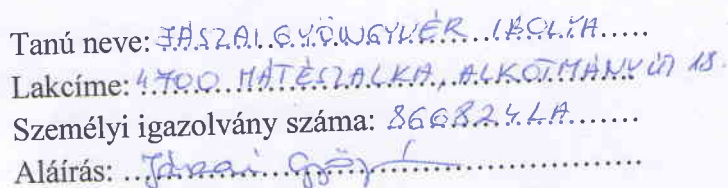 Tanú neve: JÁSZAI GYÖNGYVÉR IBOLYA
Lakcíme: 4700 MÁTÉSZALKA, ALKOTMÁNY ÚT 18.
Személyi igazolvány száma: 866824LA
Aláírás: Jászai